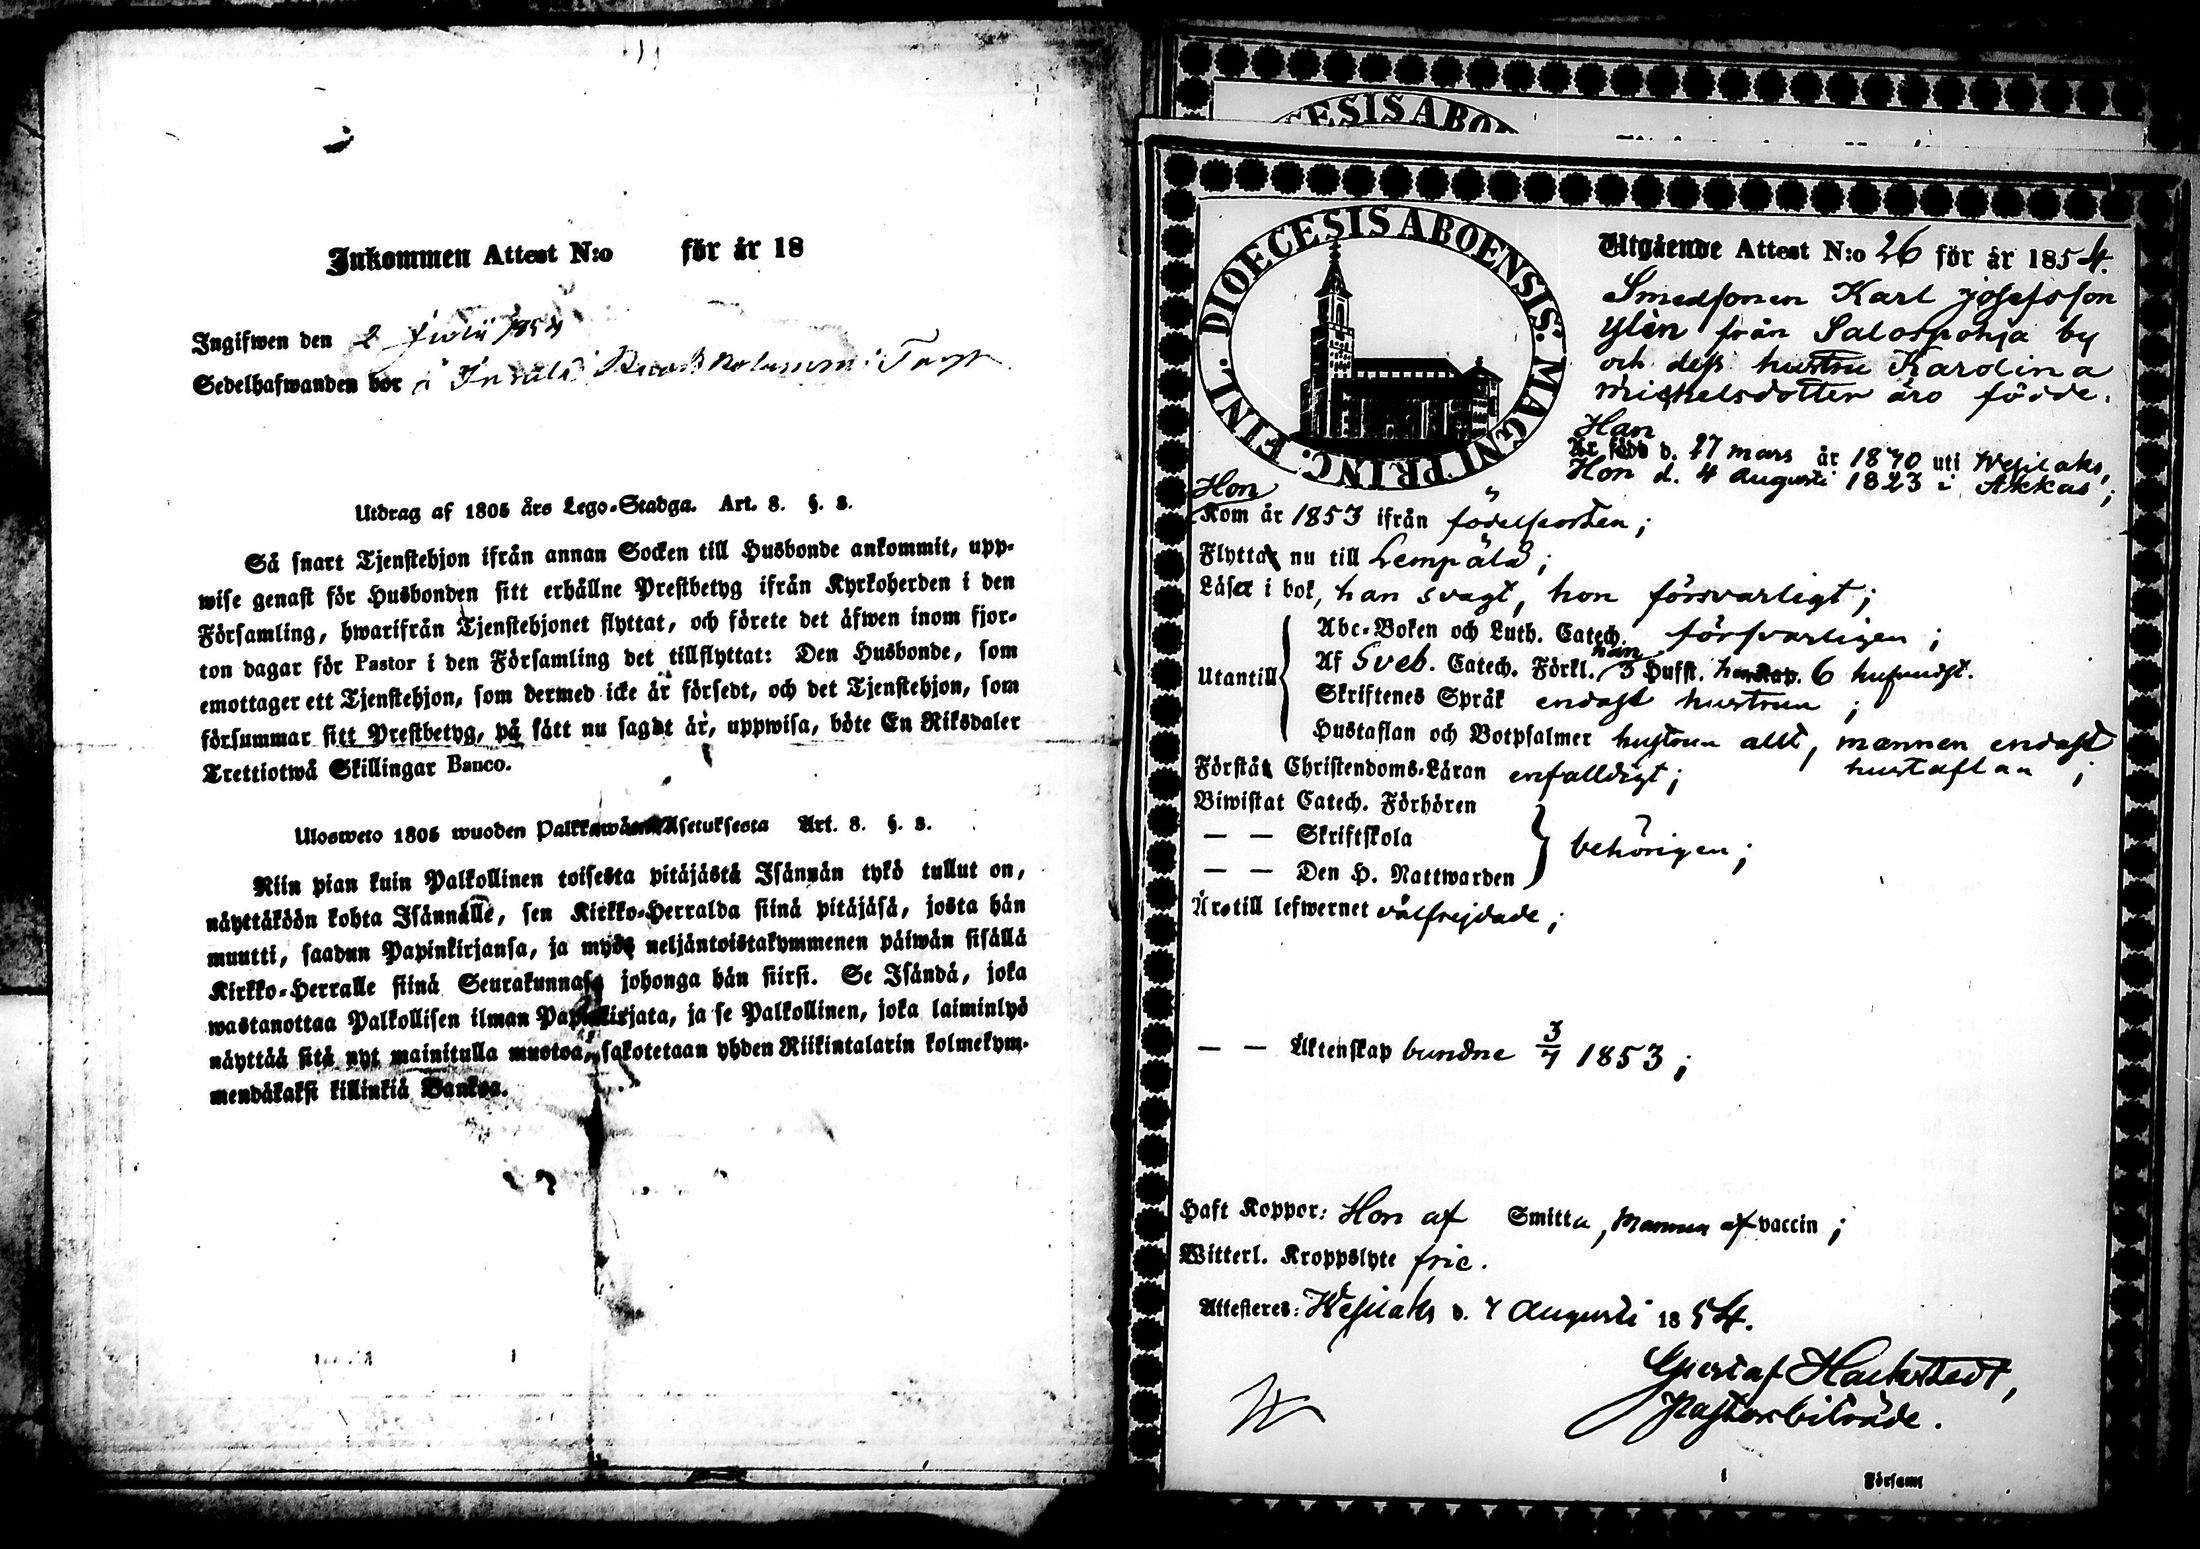 Inkommen Attest N:o för år 18
Ingifwen den 2 Julii 1854
Sedelhafwanden bor i
Utdrag af 1805 års Lego-Stadga. Art. 8. §. 3.
Så snart Tjenstehjon ifrån annan Socken till Husbonde ankommit, upp-
wise genast för Husbonden sitt erhållne Prestbetyg ifrån Kyrkoherden i den
Församling, hwarifrån Tjenstehjonet flyttat, och förete det äfwen inom fjor-
ton dagar för Pastor i den Församling det tillflyttat: Den Husbonde, som
emottager ett Tjenstehjon, som dermed icke är försedt, och det Tjenstehjon, som
försummar sitt Prestbetyg, på sätt nu sagdt är, uppwisa, böte En Riksdaler
Trettiotwå Skillingar Banco.
Ulosweto 1805 wuoden Palkkawäen Asetuksesta Art. 8. §. 3.
Niin pian kuin Palkollinen toisesta pitäjästä Isännän tykö tullut on,
näyttäköön kohta Isännälle, sen Kirkko-Herralda siinä pitäjäsä, josta hän
muutti, saadun Papinkirjansa, ja myös neljäntoistakymmenen päiwän sisällä
Kirkko-Herralle siinä Seurakunnasa johonga hän siirsi. Se Isändä, joka
wastanottaa Palkollisen ilman Papinkirjata, ja se Palkollinen, joka laiminlyö
näyttää sitä nyt mainitulla muotoa, sakotetaan yhden Riikintalarin kolmekym-
mendäkaksi killinkiä Bankoa.
ECESIS ABO
DIOECESIS ABOENSIS. MAGNI PRINC. FINL.
Utgående Attest N:o 26 för år 1854.
Smedsonen Karl Josefsson
Ylèn från Salospohja by
och dess hustru Karolina
Michelsdotter äro födde.
Han
Är född d. 27 mars år 1830 uti Wesilaks,
Hon d. 4 Augusti 1823 i Akkas;
Hon
Kom år 1853 ifrån födelseorten;
Flytta nu till Lempälä;
Läsa i bok, han svagt, hon försvarligt;
Utantill
Abc-Boken och Luth. Catech. försvarligen;
Af Sveb. Catech. Förkl. han 3 Hufst. hon 6 hufvudst.
Skriftenes Språk endast hustrun;
Hustaflan och Botpsalmer hustrun allt, mannen endast
hustaflan;
Förstå Christendoms-Läran enfalldigt;
Biwistat Catech. Förhören
— — Skriftskola
— — Den H. Nattwarden
behörigen;
Äro till lefwernet välfrejdade;
— — Äktenskap bundne 3/7 1853;
Haft Koppor: Hon af Smitta, Mannen af vaccin;
Witterl. Kroppslyte frie.
Attesteres: Wesilaks d. 7 Augusti 1854.
Gustaf Hackstedt,
Pastorbiträde.
Församl